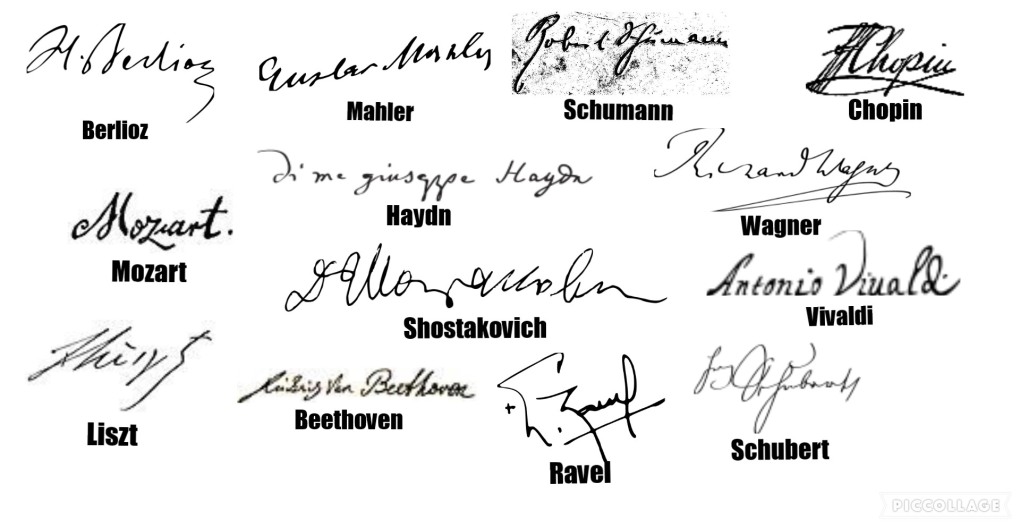 H. Berlioz
Berlioz
Gustav Mahler
Mahler
Robert Schumann
Schumann
FChopin
Chopin
Di me giuseppe Haydn
Haydn
Richard Wagner
Wagner
Mozart.
Mozart
Shostakovich
Antonio Viualdi
Vivaldi
Liszt
Ludwig van Beethoven
Beethoven
Ravel
Schubert
PICCOLLAGE